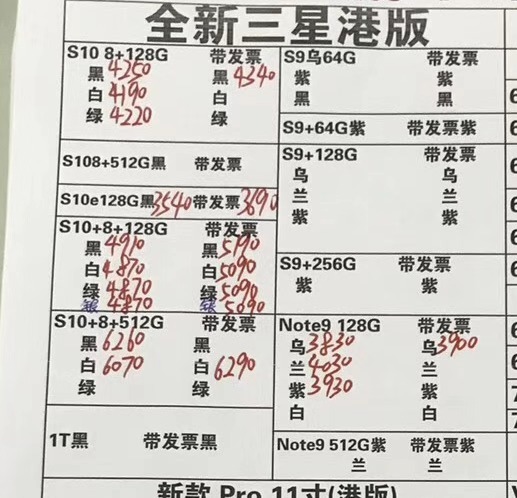 全新三星港版
S10 8+128G 带发票
黑4250 黑4340
白4190 白
绿4220 绿
S108+512G黑 带发票
S10e128G黑3540带发票3690
S10+8+128G 带发票
黑4910 黑5190
白4870 白5090
绿4870 绿5090
银4870 银5090
S10+8+512G 带发票
黑6260 黑
白6070 白6290
绿 绿
1T黑 带发票黑
S9乌64G 带发票
紫 紫
黑 黑
S9+64G紫 带发票紫
S9+128G 带发票
乌 乌
兰 兰
紫 紫
S9+256G 带发票
紫 紫
Note9 128G 带发票
乌3830 乌3900
兰4030 兰
紫3930 紫
白 白
Note9 512G紫 带发票紫
兰 兰
新款 Pro 11寸(港版)